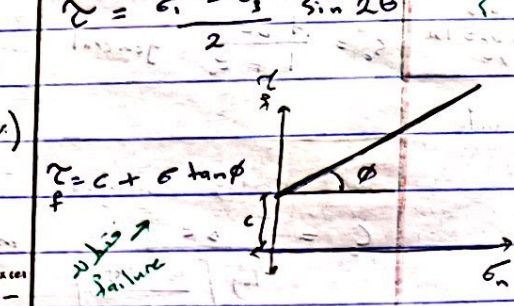 τ = σ₁ - σ₃ / 2 sin 2θ
τ
f
τf = c + σ tan φ
φ
c
failure
σn